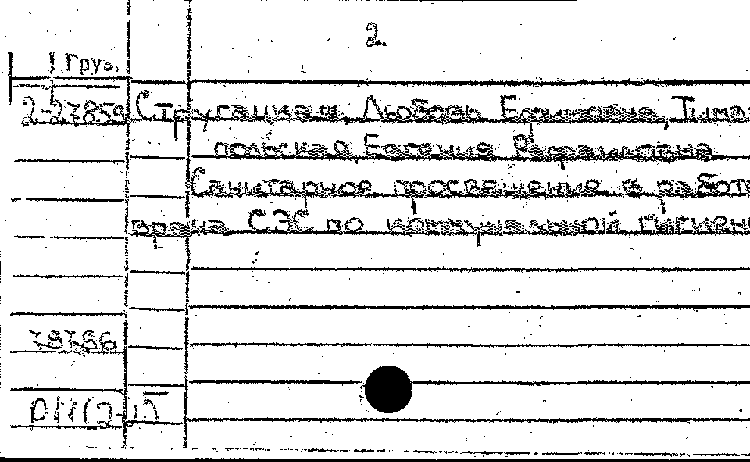 2.
Груз.
2-27859 Стругацкая, Любовь Ефимовна, Тима
польская, Евгения Рафаиловна
Санитарное просвещение в работе
врача СЭС по коммунальной гигиене
78786